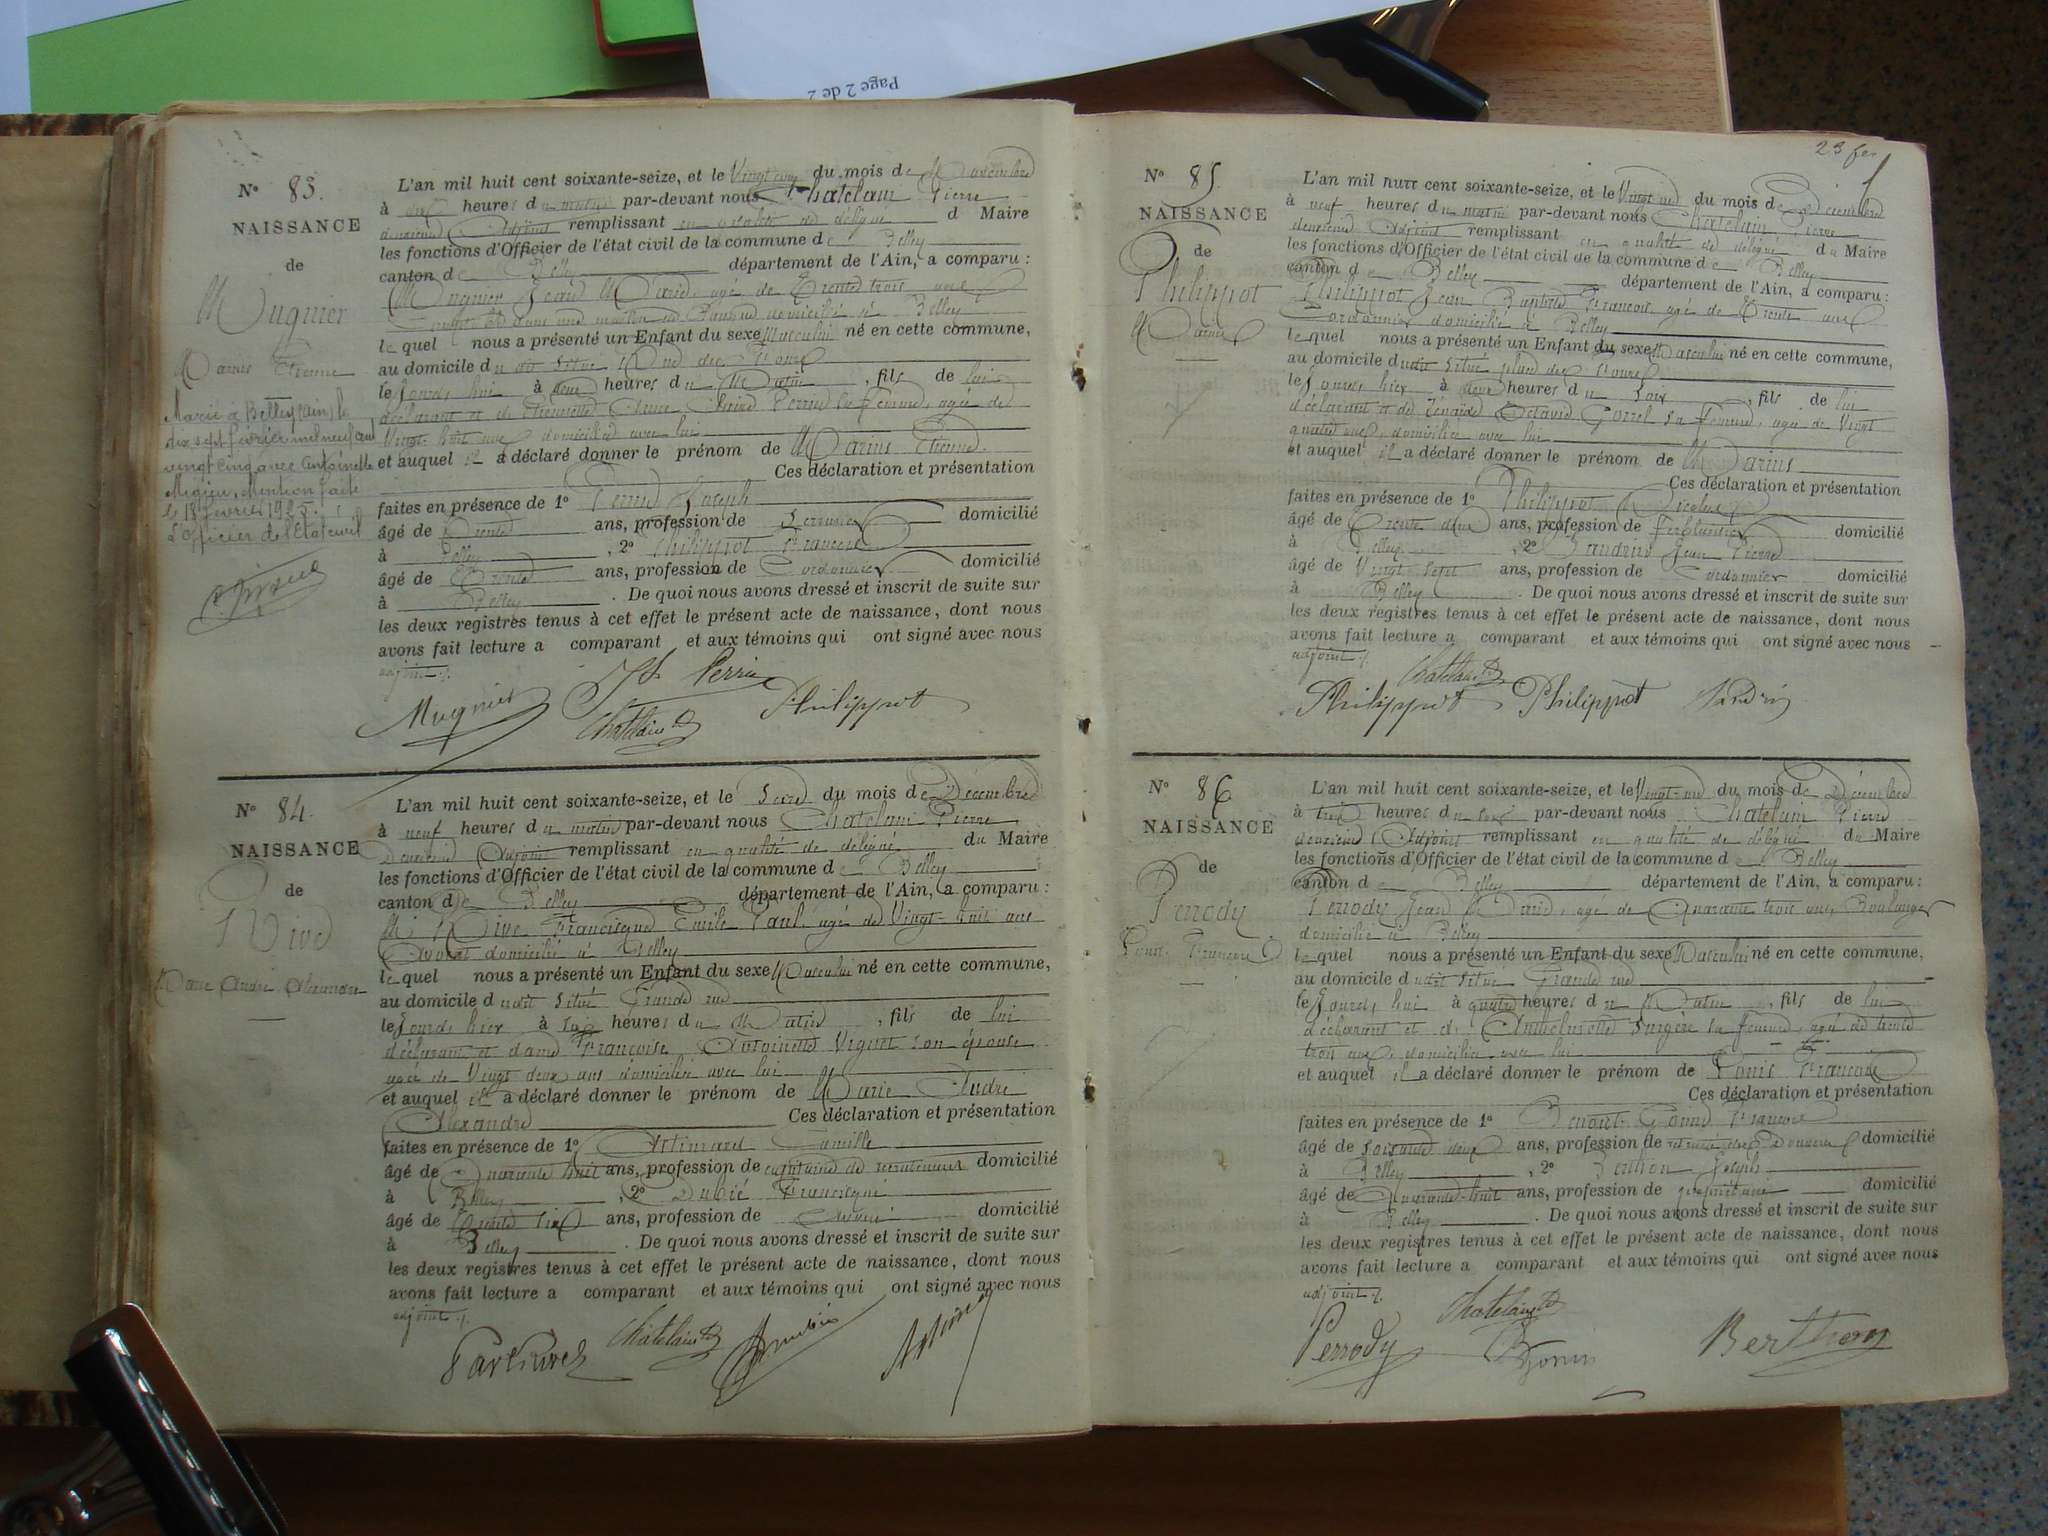 Page 2 de 2
N° 83.
NAISSANCE
de
Mugnier
Marius Etienne
Marié à Belley (Ain) le
dix sept février mil neuf cent
vingt cinq avec Antoinette
Migieu. Mention faite
le 18 février 1925.
L'Officier de l'Etat civil
L'an mil huit cent soixante-seize, et le Vingt cinq du mois de Novembre
à heures du matin par-devant nous Chatelain Pierre
deuxième Adjoint remplissant en qualité de délégué d Maire
les fonctions d'Officier de l'état civil de la commune de Belley
canton de Belley département de l'Ain, a comparu :
Mugnier Jean Marie, agé de Trente trois ans
domicilié à Belley
lequel nous a présenté un Enfant du sexe Masculin né en cette commune,
au domicile du dit situé Rue des
le jourd'hui à deux heures du Matin, fils de lui
déclarant et de Perrin sa femme, agée de
Vingt-huit ans domiciliée avec lui
et auquel il a déclaré donner le prénom de Marius Etienne.
Ces déclaration et présentation
faites en présence de 1° Perrin Joseph
âgé de Trente ans, profession de Serrurier domicilié
à Belley, 2° Philippot François
âgé de Trente ans, profession de Cordonnier domicilié
à Belley. De quoi nous avons dressé et inscrit de suite sur
les deux registres tenus à cet effet le présent acte de naissance, dont nous
avons fait lecture a comparant et aux témoins qui ont signé avec nous
adjoint ./.
Mugnier Jh Perrin Chatelain Philippot
N° 84.
NAISSANCE
de
Rive
Marie André Alexandre
L'an mil huit cent soixante-seize, et le Seize du mois de Décembre
à neuf heures du matin par-devant nous Chatelain Pierre
Deuxième Adjoint remplissant en qualité de délégué du Maire
les fonctions d'Officier de l'état civil de la commune de Belley
canton de Belley département de l'Ain, a comparu :
Mr Rive Francisque Emile Paul agé de Vingt-huit ans
Avocat domicilié à Belley
lequel nous a présenté un Enfant du sexe Masculin né en cette commune,
au domicile dudit situé Grande rue
le Jourd, hier à heures du Matin, fils de lui
déclarant et dame Françoise Antoinette Viguet son épouse
agée de Vingt deux ans domiciliée avec lui
et auquel il a déclaré donner le prénom de Marie André
Alexandre Ces déclaration et présentation
faites en présence de 1° Camille
âgé de Quarante huit ans, profession de capitaine de recrutement domicilié
à Belley, 2° Dubié Francisque
âgé de trente six ans, profession de Avoué domicilié
à Belley. De quoi nous avons dressé et inscrit de suite sur
les deux registres tenus à cet effet le présent acte de naissance, dont nous
avons fait lecture a comparant et aux témoins qui ont signé avec nous
adjoint ./.
Chatelain
N° 85.
NAISSANCE
de
Philippot
Marius
L'an mil huit cent soixante-seize, et le Vingt un du mois de Décembre
à neuf heures du matin par-devant nous Chatelain Pierre
deuxième Adjoint remplissant en qualité de délégué du Maire
les fonctions d'Officier de l'état civil de la commune de Belley
canton de Belley département de l'Ain, a comparu :
Philippot Jean Baptiste François agé de Trente ans
Cordonnier domicilié à Belley
lequel nous a présenté un Enfant du sexe Masculin né en cette commune,
au domicile dudit situé place des
le Jourd, hier à deux heures du Soir, fils de lui
déclarant et de Zénaïde Octavie Gorrel sa femme, agée de Vingt
quatre ans, domiciliée avec lui
et auquel il a déclaré donner le prénom de Marius
Ces déclaration et présentation
faites en présence de 1° Philippot Nicolas
âgé de Trente deux ans, profession de Ferblantier domicilié
à Belley, 2° Jean Pierre
âgé de Vingt-sept ans, profession de Cordonnier domicilié
à Belley. De quoi nous avons dressé et inscrit de suite sur
les deux registres tenus à cet effet le présent acte de naissance, dont nous
avons fait lecture a comparant et aux témoins qui ont signé avec nous
adjoint ./.
Chatelain
Philippot Philippot
N° 86
NAISSANCE
de
Perrody
Louis François
L'an mil huit cent soixante-seize, et le Vingt-un du mois de Décembre
à trois heures du soir par-devant nous Chatelain Pierre
deuxième Adjoint remplissant en qualité de délégué du Maire
les fonctions d'Officier de l'état civil de la commune de Belley
canton de Belley département de l'Ain, a comparu :
Perrody Jean Marie, agé de Quarante trois ans, Boulanger
domicilié à Belley
lequel nous a présenté un Enfant du sexe Masculin né en cette commune,
au domicile dudit situé Grande rue
le Jourd, hui à quatre heures du Matin, fils de lui
déclarant et d'Anthelmette Surgère sa femme, agée de trente
trois ans, domiciliée avec lui
et auquel il a déclaré donner le prénom de Louis François
Ces déclaration et présentation
faites en présence de 1° François
âgé de soixante deux ans, profession de domicilié
à Belley, 2° Berthon Joseph
âgé de Quarante-huit ans, profession de propriétaire domicilié
à Belley. De quoi nous avons dressé et inscrit de suite sur
les deux registres tenus à cet effet le présent acte de naissance, dont nous
avons fait lecture a comparant et aux témoins qui ont signé avec nous
adjoint ./.
Chatelain
Perrody Berthon